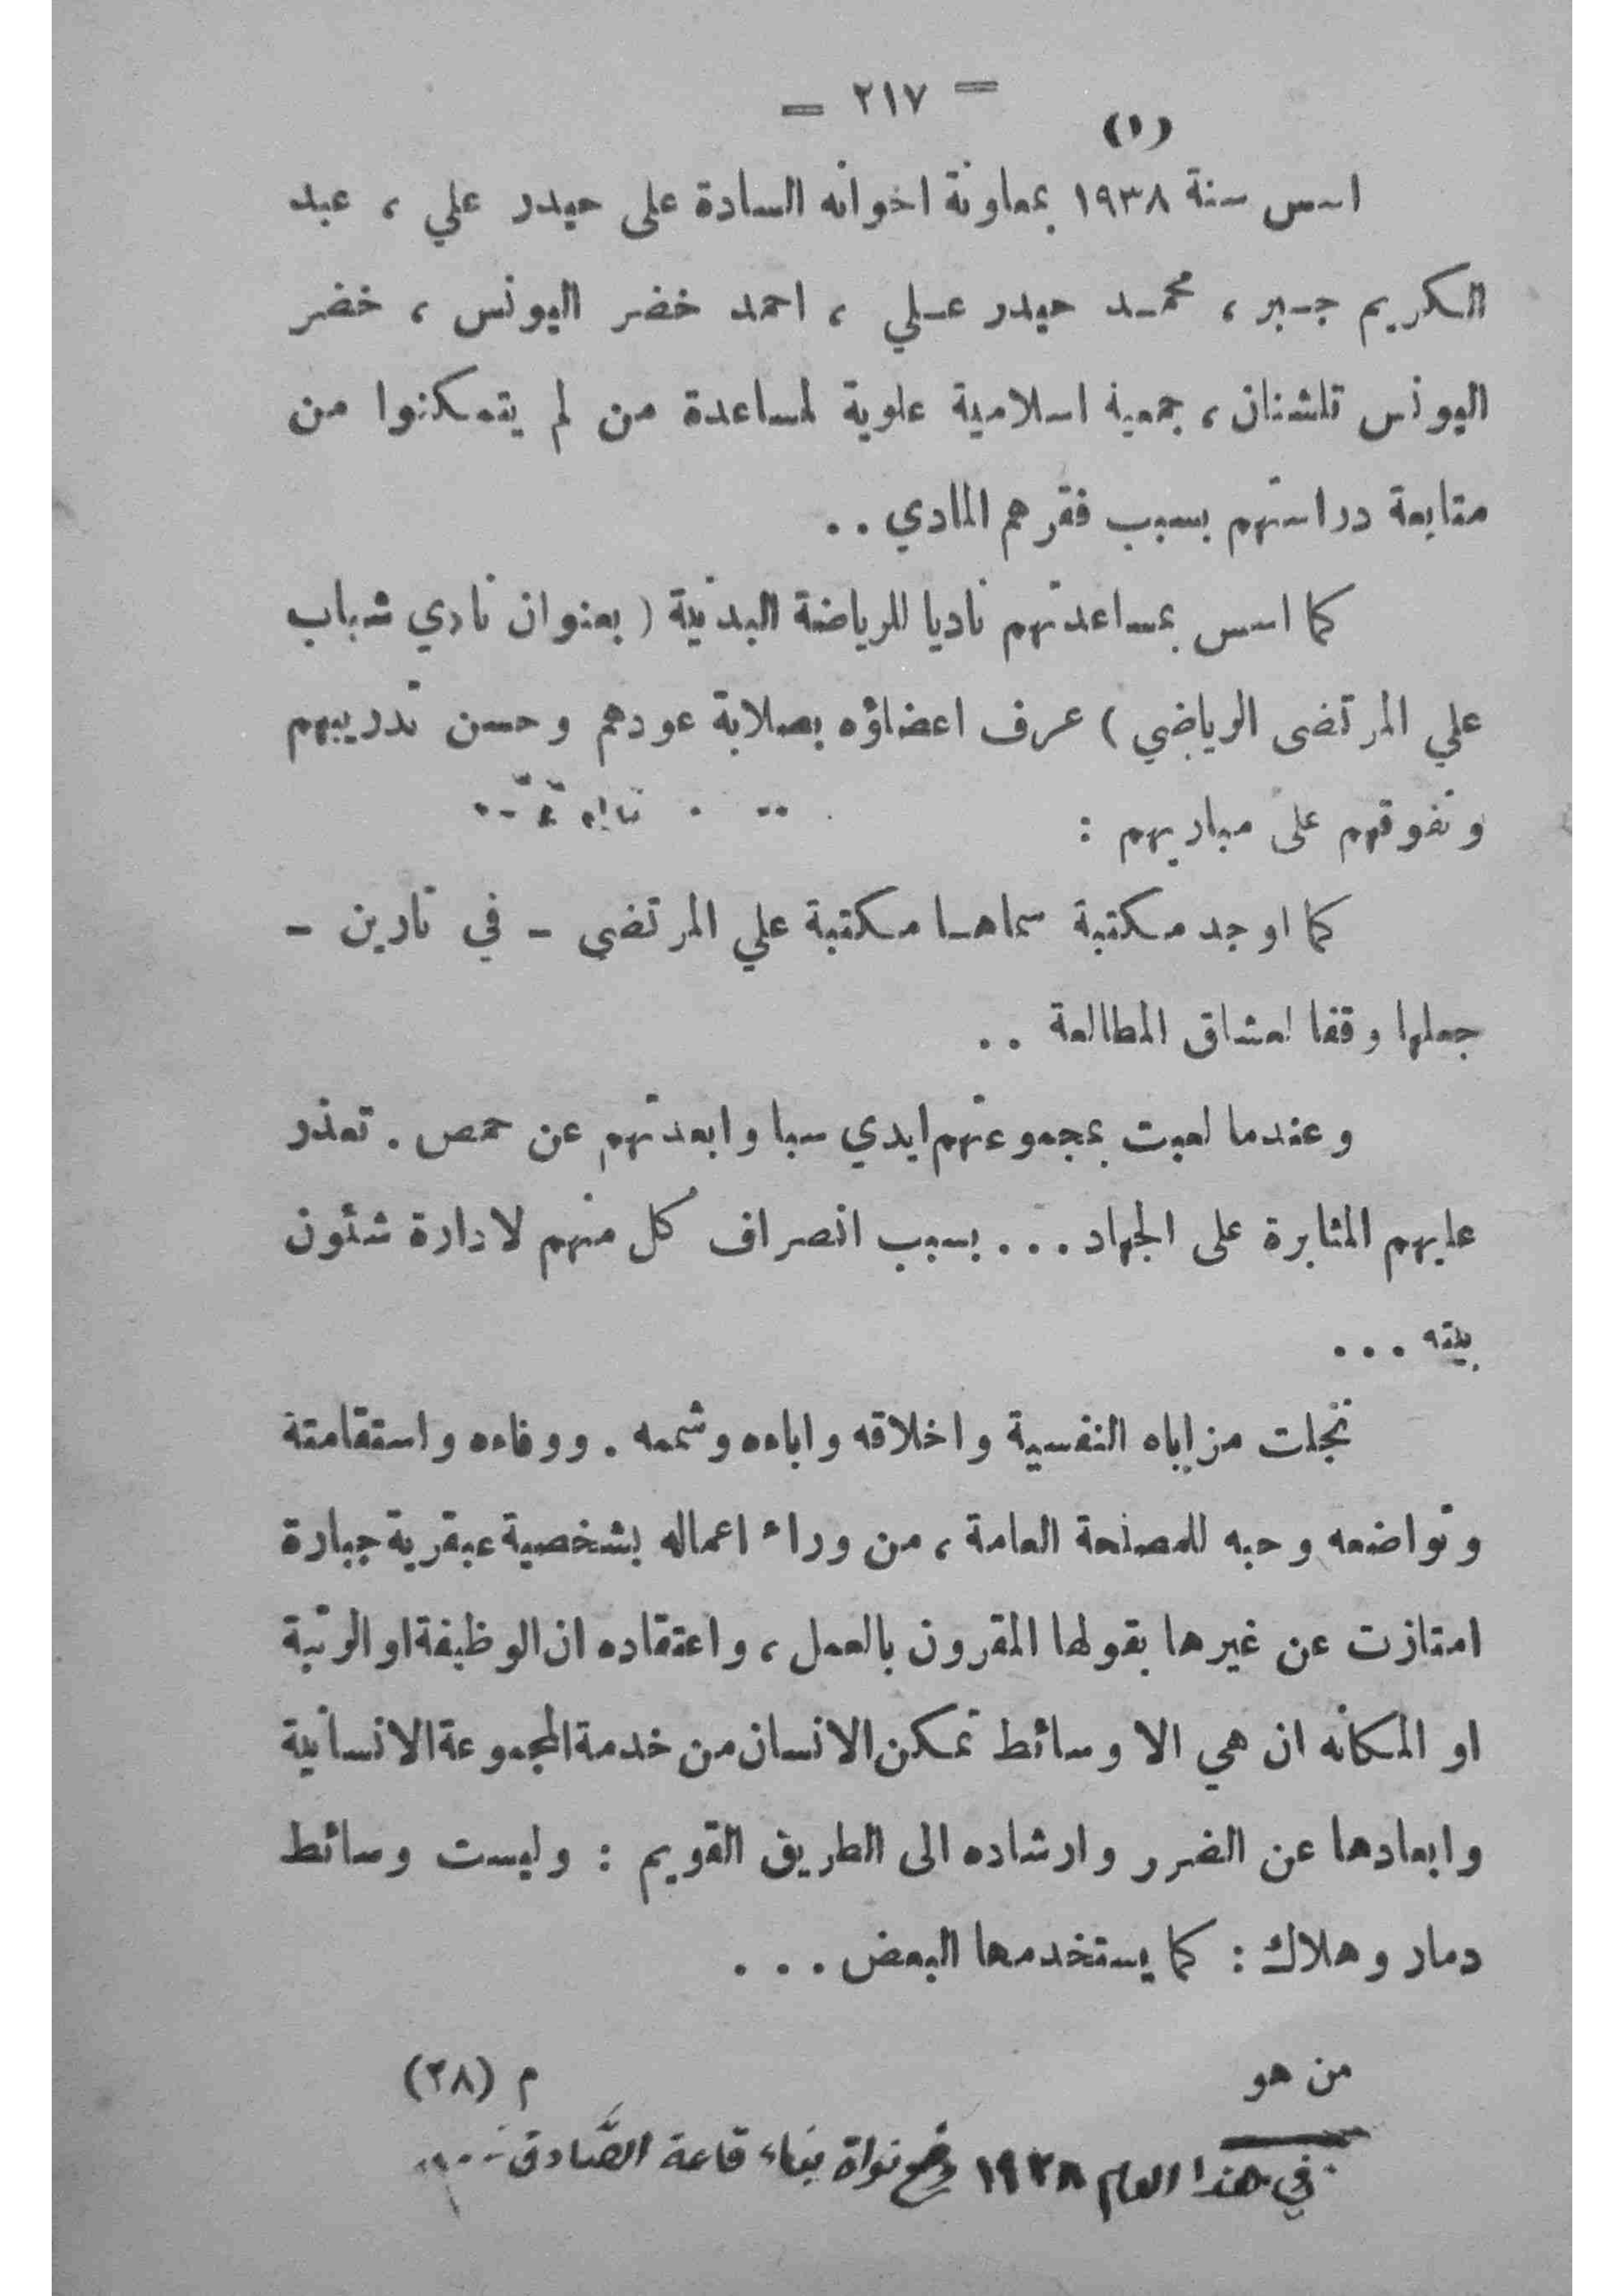 — ٢١٧ —
(١)
اسس سنة ١٩٣٨ بمعاونة اخوانه السادة على حيدر علي ، عبد
الكريم جبر ، محمد حيدر علي ، احمد خضر اليونس ، خضر
اليونس تلشنان ، جمعية اسلامية علوية لمساعدة من لم يتمكنوا من
متابعة دراستهم بسبب فقرهم المادي . .
كما اسس بمساعدتهم ناديا للرياضة البدنية ( بعنوان نادي شباب
علي المرتضى الرياضي ) عرف اعضاؤه بصلابة عودهم وحسن تدريبهم
وتفوقهم على مباريهم :
كما اوجد مكتبة سماها مكتبة علي المرتضى – في تارين –
جعلها وقفا لعشاق المطالعة . .
وعندما لعبت بمجموعتهم ايدي سبا وابعدتهم عن حمص . تعذر
عليهم المثابرة على الجهاد . . . بسبب انصراف كل منهم لادارة شئون
بيته . . .
تجلت مزاياه النفسية واخلاقه واباءه وشممه . ووفاءه واستقامتة
وتواضعه وحبه للمصلحة العامة ، من وراء اعماله بشخصية عبقرية جبارة
امتازت عن غيرها بقولها المقرون بالعمل ، واعتقاده ان الوظيفة او الرتبة
او المكانه ان هي الا وسائط تمكن الانسان من خدمة المجموعة الانسانية
وابعادها عن الضرر وارشاده الى الطريق القويم : وليست وسائط
دمار وهلاك : كما يستخدمها البعض . . .
من هو م (٢٨)
في هذا العام ١٩٣٨ وضع نواة بناء قاعة الصَّادق